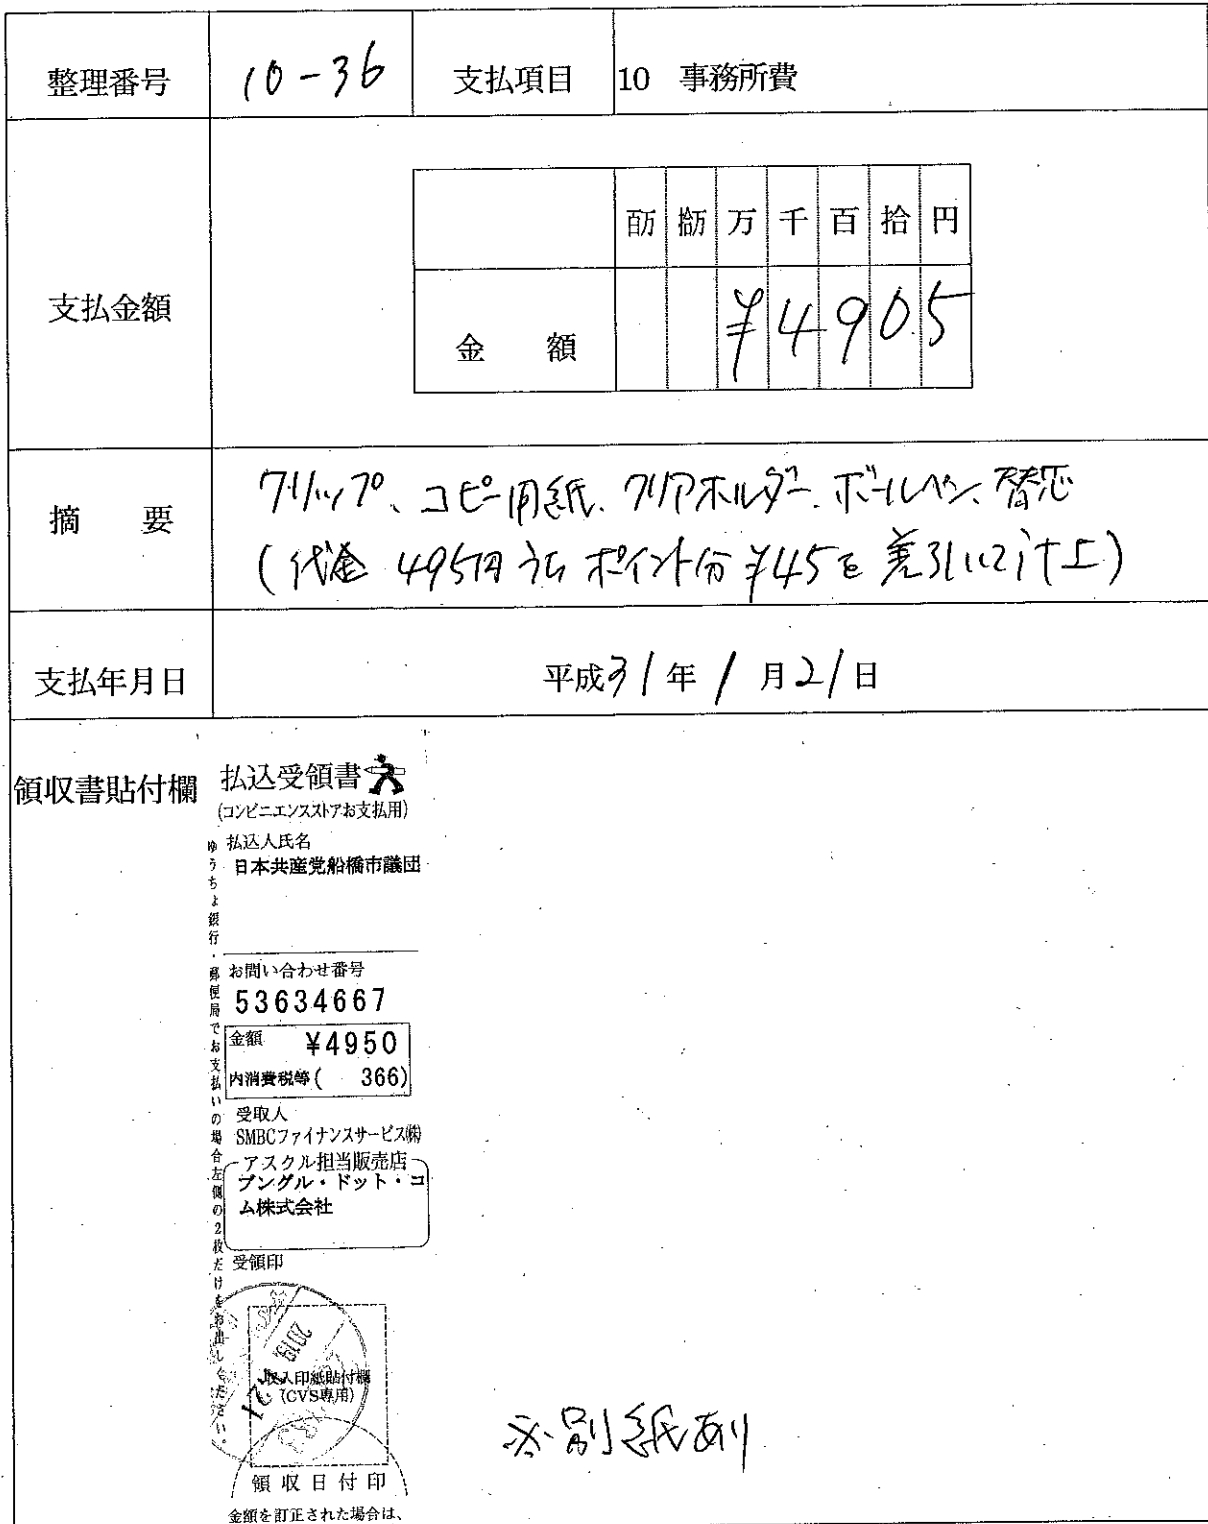 整理番号 10-36 支払項目 10 事務所費
百万 拾万 万 千 百 拾 円
支払金額
金 額 ¥4905
摘 要
クリップ、コピー用紙、クリアホルダー、ボールペン、替芯
(代金 4951円うち ポイント分¥45を差引いて計上)
支払年月日 平成31年1月21日
領収書貼付欄
払込受領書
(コンビニエンスストアお支払用)
払込人氏名
日本共産党船橋市議団
ゆうちょ銀行・郵便局でお支払いの場合左側の2枚だけをお出しください。
お問い合わせ番号
53634667
金額 ¥4950
内消費税等( 366)
受取人
SMBCファイナンスサービス㈱
アスクル担当販売店
ブングル・ドット・コ
ム株式会社
受領印
2019
1.21
収入印紙貼付欄
(CVS専用)
領収日付印
金額を訂正された場合は、
※別紙あり